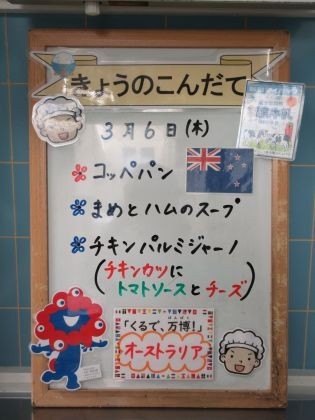 きょうのこんだて
3月6日(木)
コッペパン
まめとハムのスープ
チキンパルミジャーノ
(チキンカツに
トマトソースとチーズ)
「くるぞ、万博!」
ばんぱく
オーストラリア